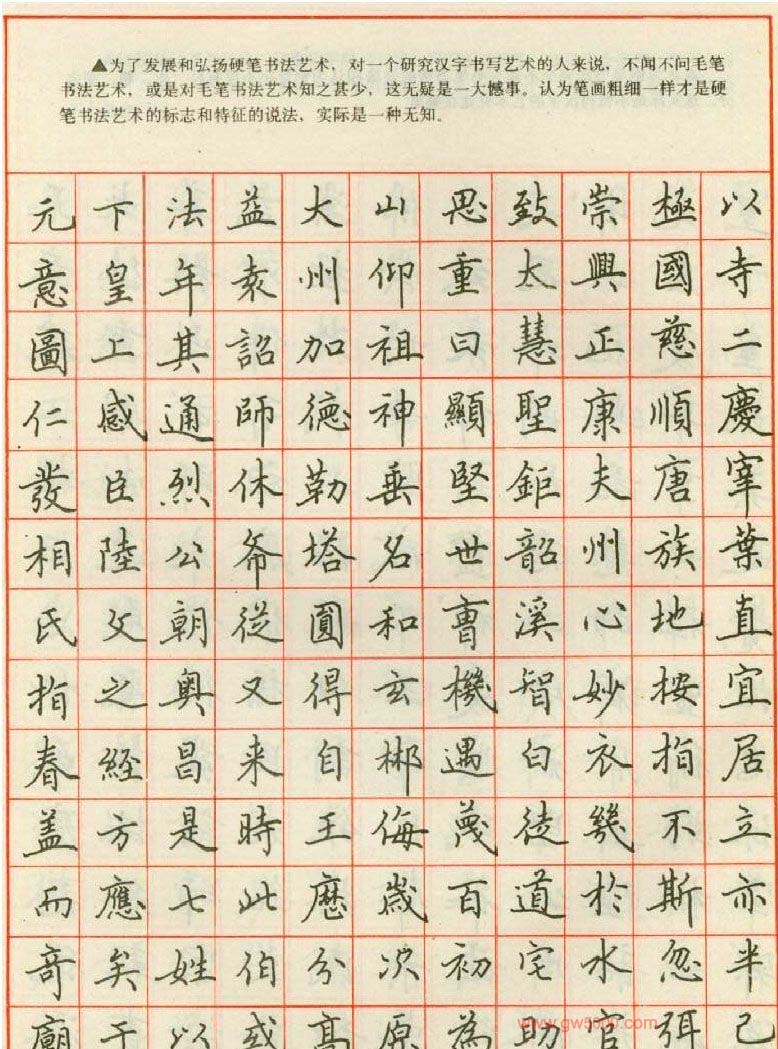 ▲为了发展和弘扬硬笔书法艺术，对一个研究汉字书写艺术的人来说，不闻不问毛笔
书法艺术，或是对毛笔书法艺术知之甚少，这无疑是一大憾事。认为笔画粗细一样才是硬
笔书法艺术的标志和特征的说法，实际是一种无知。
以寺二慶宰葉直宜居立亦半己
極國慈順唐族地按指不斯忽弭
崇興正康夫州心妙衣幾於水官
致太慧聖鉅韶溪智白徒道宅助
思重曰顯堅世曹機遇蔑百初為
山仰祖神垂名和玄郴侮歲次原
大州加德勒塔圓得自王歷分高
益袁詔師休從又来時此伯或
法年其通烈公朝奥昌是七姓以
下皇上感臣陸文之經方應矣于
元意圖仁發相氏指春盖而奇廟
www.gw5000.com